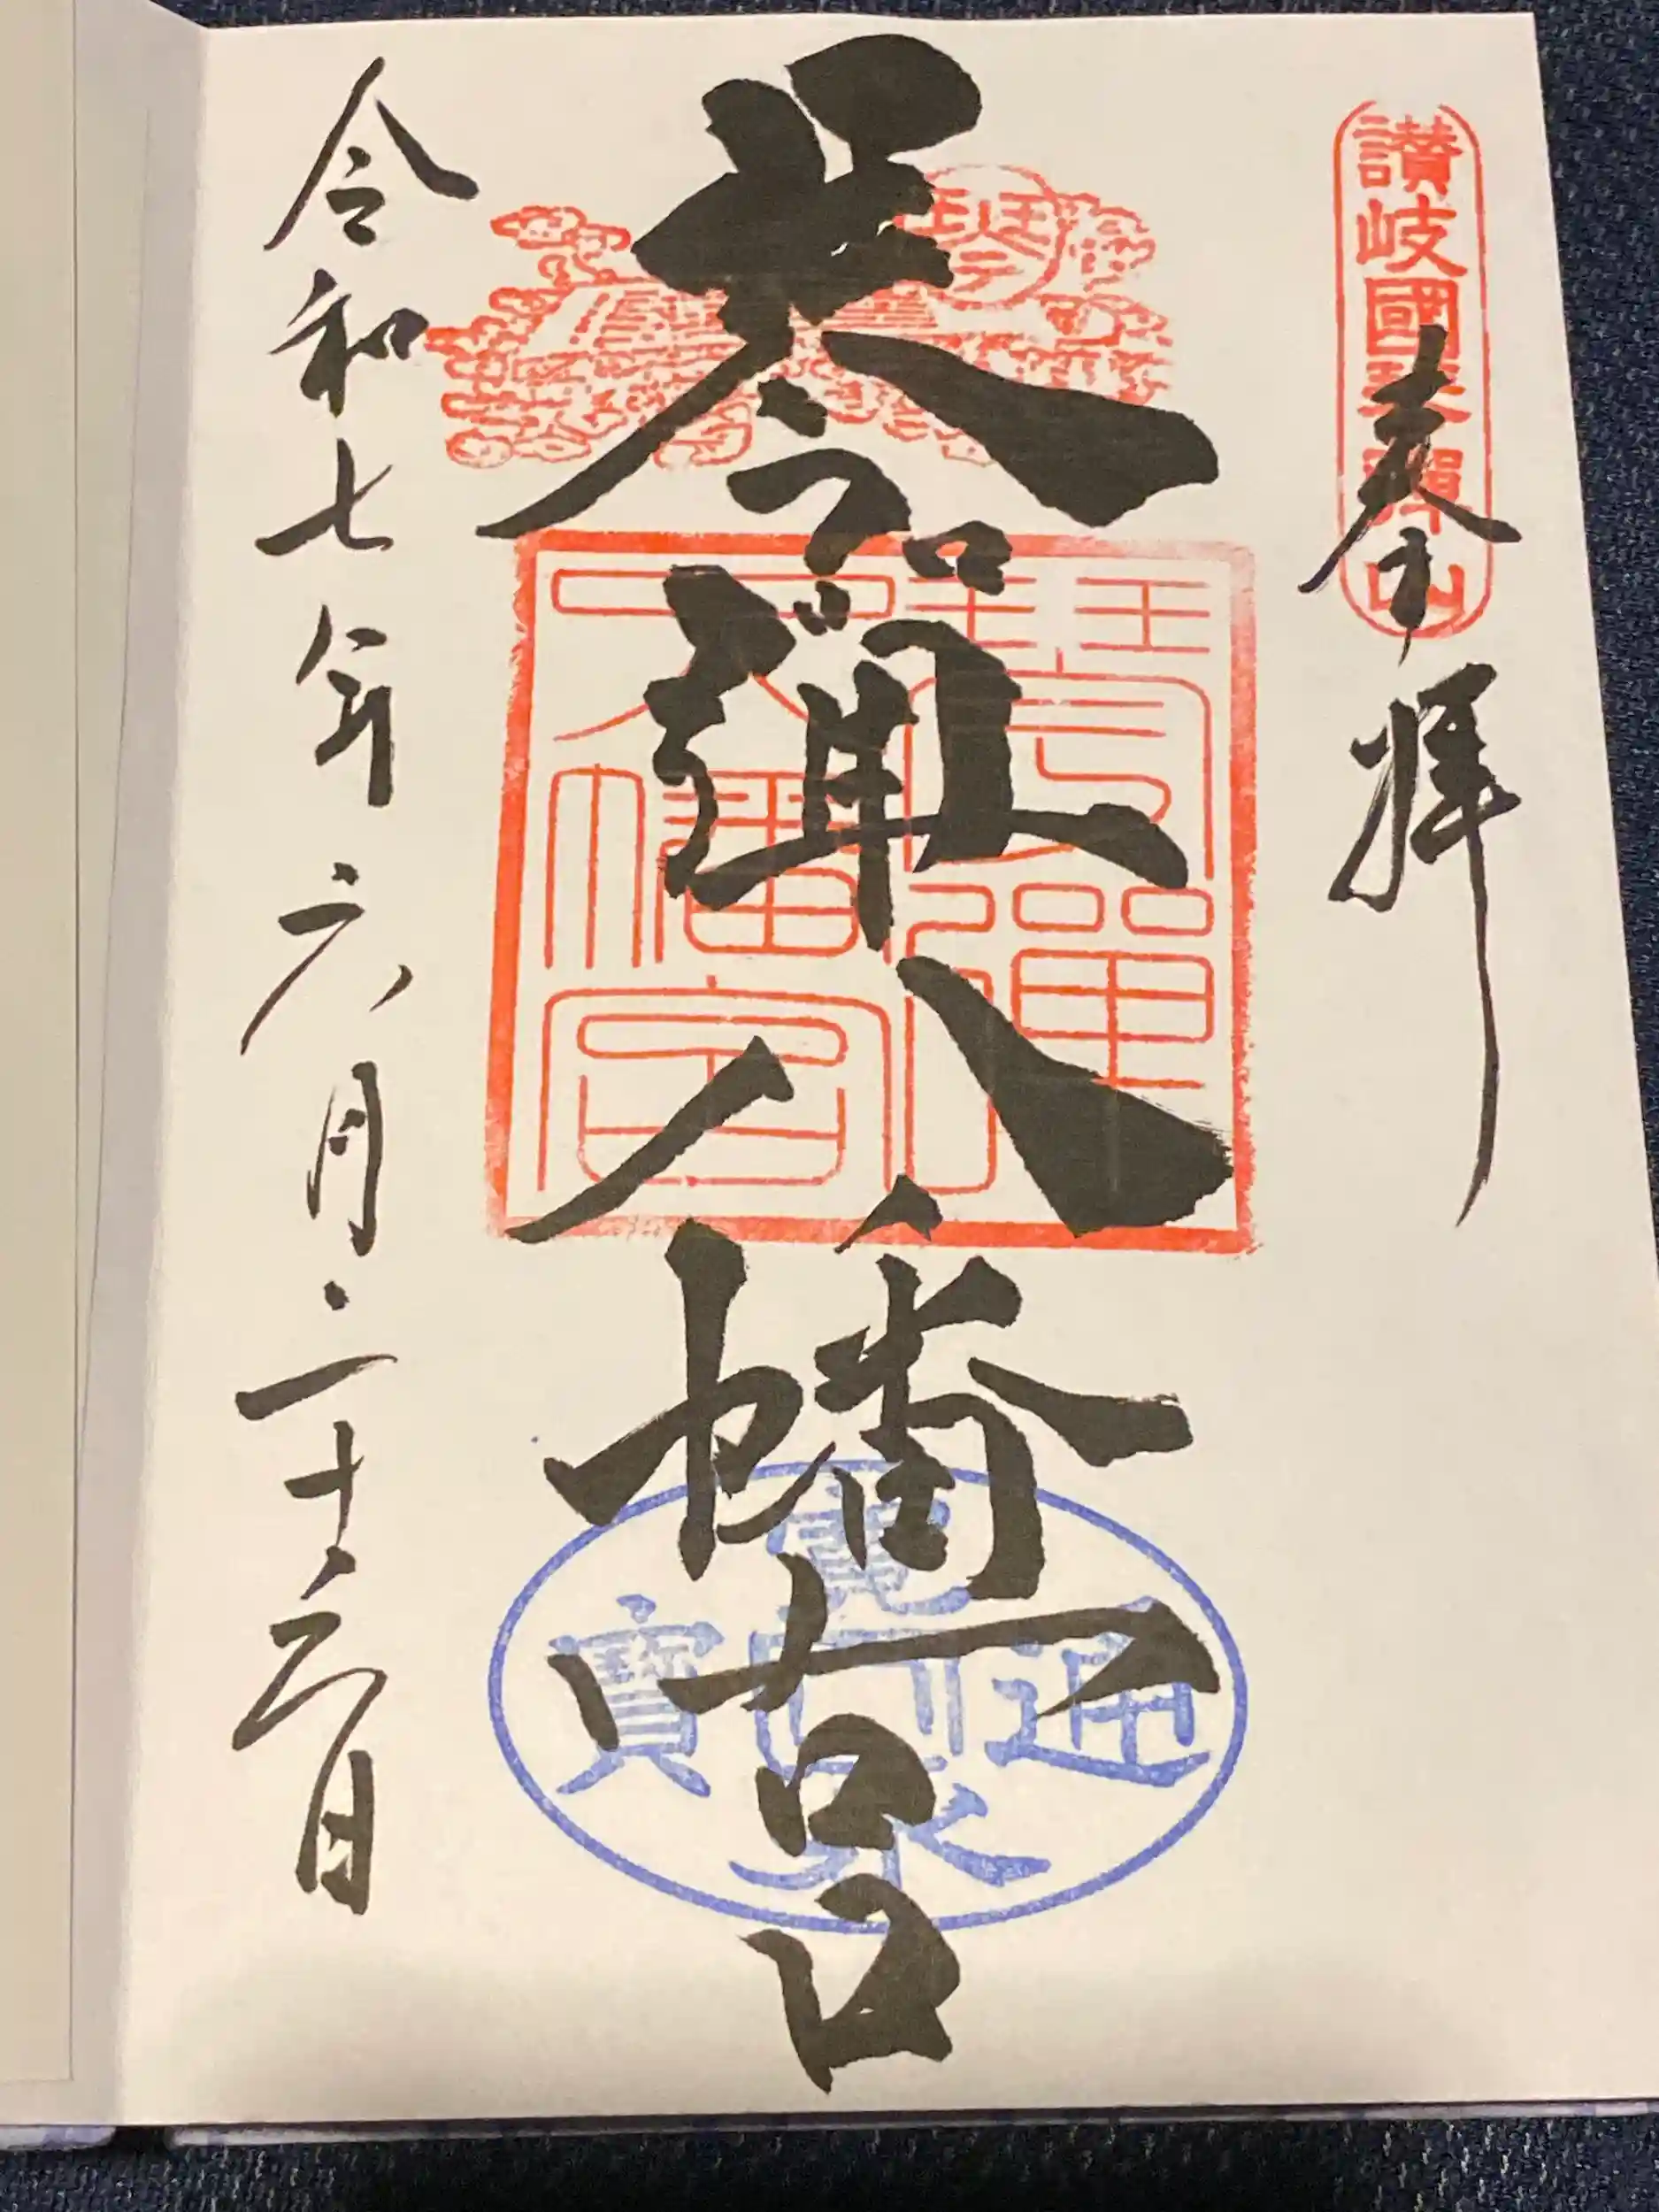 讃岐國琴彈山
奉拝
琴
琴弾八幡宮
琴彈
八幡宮
寛永通寳
令和七年六月二十六日